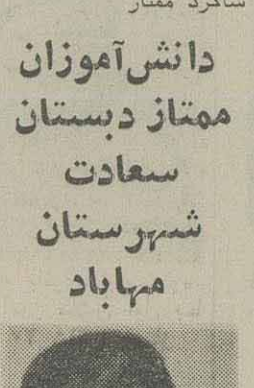 شاگرد ممتاز
دانش‌آموزان
ممتاز دبستان
سعادت
شهرستان
مهاباد